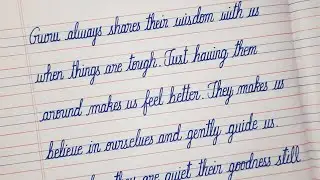 Guru always shares their wisdom with us
when things are tough. Just having them
around makes us feel better. They makes us
believe in ourselves and gently guide us.
they are quiet their goodness still